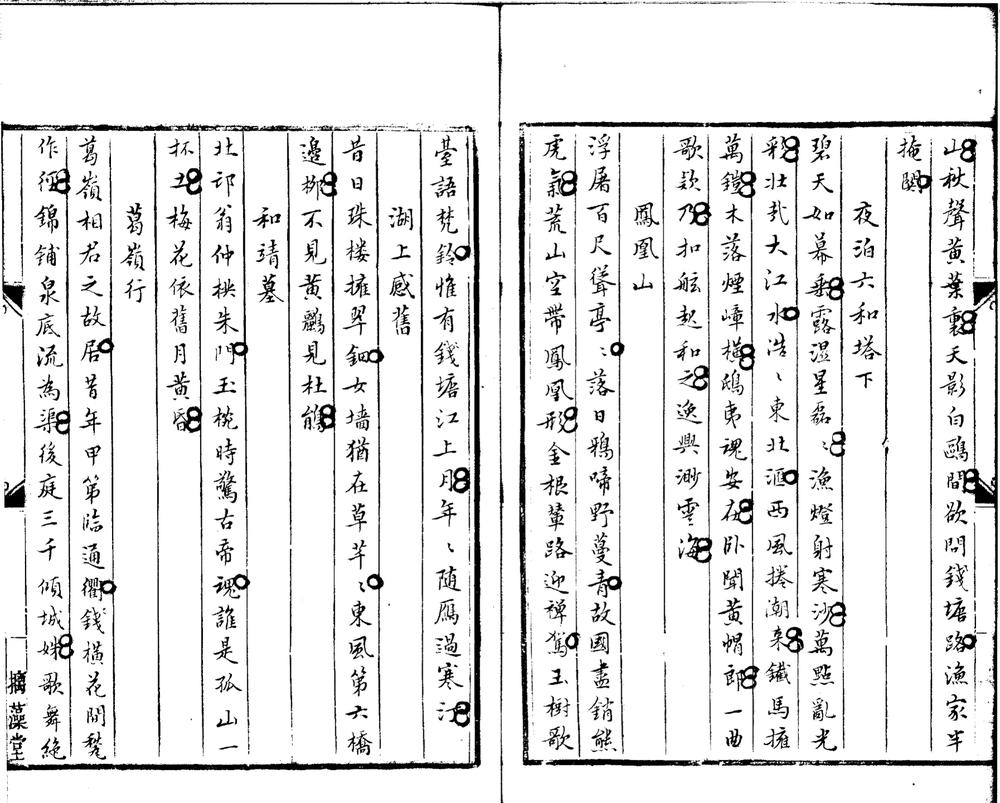 山秋聲黃葉裏天影白鷗間欲問錢塘路漁家半
掩關
夜泊六和塔下
碧天如幕垂露濕星磊〻漁燈射寒沙萬點亂光
彩壯哉大江水浩〻東北滙西風捲潮来鐵馬擁
萬鎧木落煙嶂橫鴟夷魂安在卧聞黃帽郎一曲
歌欵乃扣舷起和之逸興渺雲海
鳳凰山
浮屠百尺聳亭〻落日鴉啼野蔓青故國盡銷熊
虎氣荒山空帶鳳凰形金根輦路迎禪駕玉樹歌
臺語梵鈴惟有錢塘江上月年〻随雁過寒汀
湖上感舊
昔日珠楼擁翠鈿女墻猶在草芊〻東風第六橋
邊柳不見黃鸝見杜鵑
和靖墓
北邙翁仲拱朱門玉椀時驚古帝魂誰是孤山一
抔土梅花依舊月黃昏
葛嶺行
葛嶺相君之故居昔年甲第臨通衢錢橫花間甃
作徑錦鋪泉底流為渠後庭三千傾城姝歌舞絶
摛藻堂